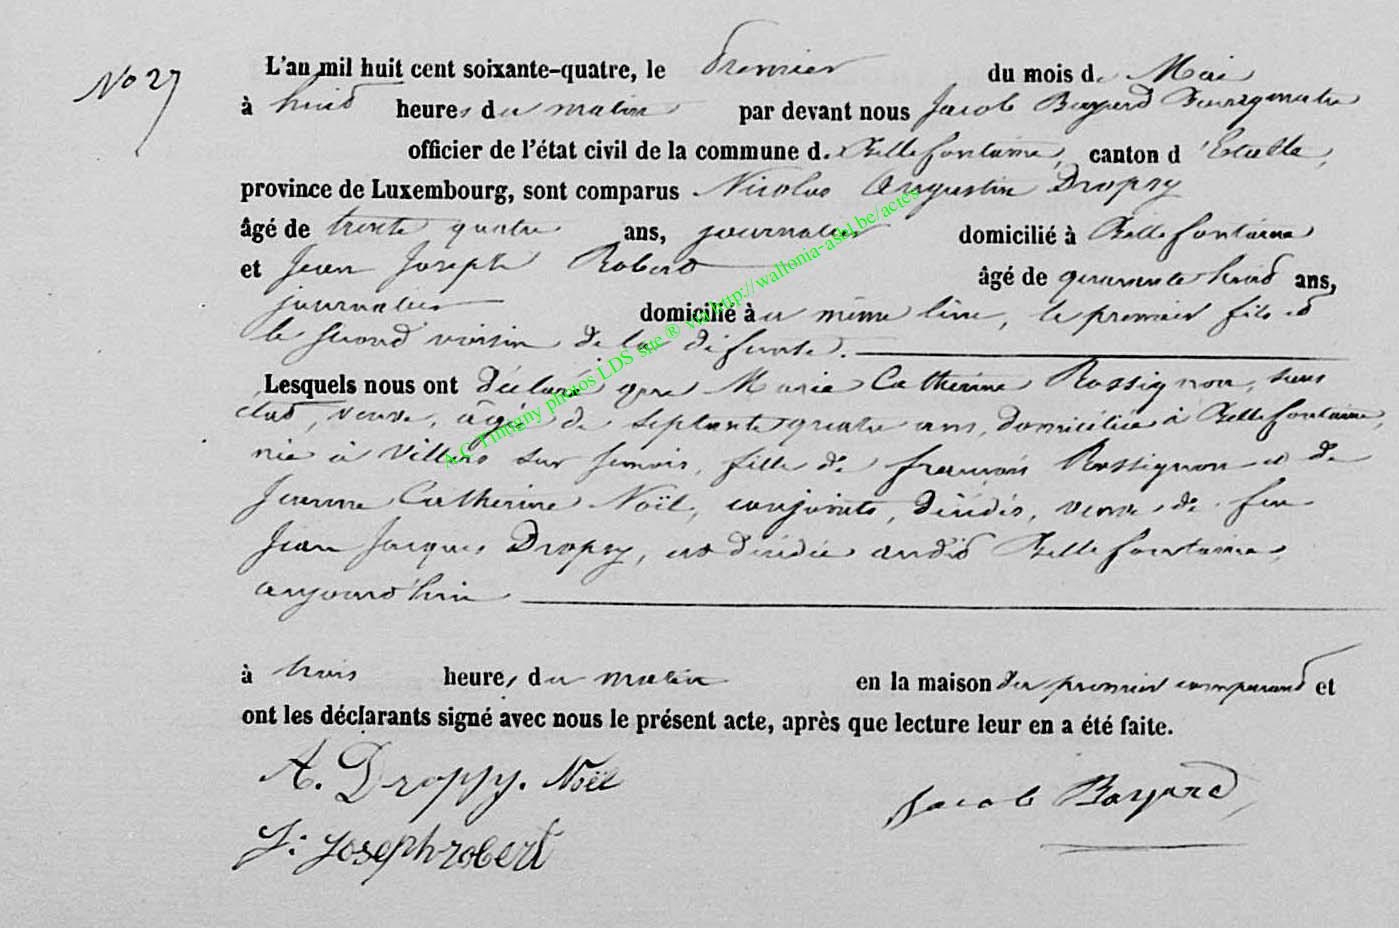 No 27
L'an mil huit cent soixante-quatre, le premier du mois de Mai
à huit heures du matin par devant nous Jacob Bayard Bourgmestre
officier de l'état civil de la commune de Bellefontaine, canton d'Etalle,
province de Luxembourg, sont comparus Nicolas Augustin Dropsy
âgé de trente quatre ans, journalier domicilié à Bellefontaine
et Jean Joseph Robert âgé de quarante huit ans,
journalier domicilié au même lieu, le premier fils et
le second voisin de la défunte.
Lesquels nous ont déclaré que Marie Catherine Rossignon, sans
état, veuve, âgée de septante quatre ans, domiciliée à Bellefontaine,
née à Villers sur Semois, fille de François Rossignon et de
Jeanne Catherine Noël, conjoints, décédés, veuve de feu
Jean Jacques Dropsy, est décédée audit Bellefontaine,
aujourd'hui
à trois heures du matin en la maison du premier comparant et
ont les déclarants signé avec nous le présent acte, après que lecture leur en a été faite.
A. Dropsy. Noël
Jacob Bayard
J: Joseph robert
A.C Tintigny photos LDS site ® via http://wallonia-asbl.be/actes